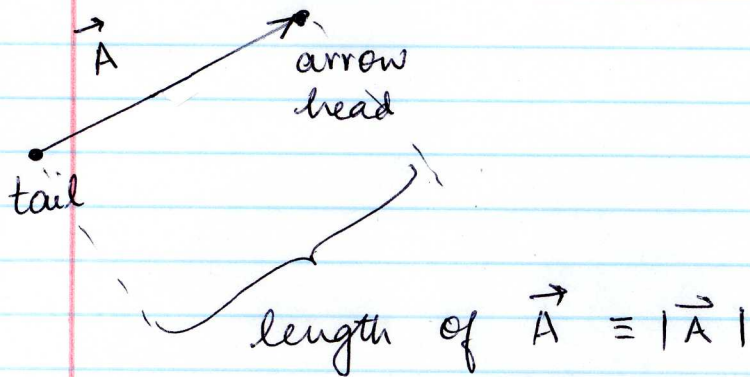 A⃗
arrow
head
tail
length of A⃗ ≡ |A⃗|